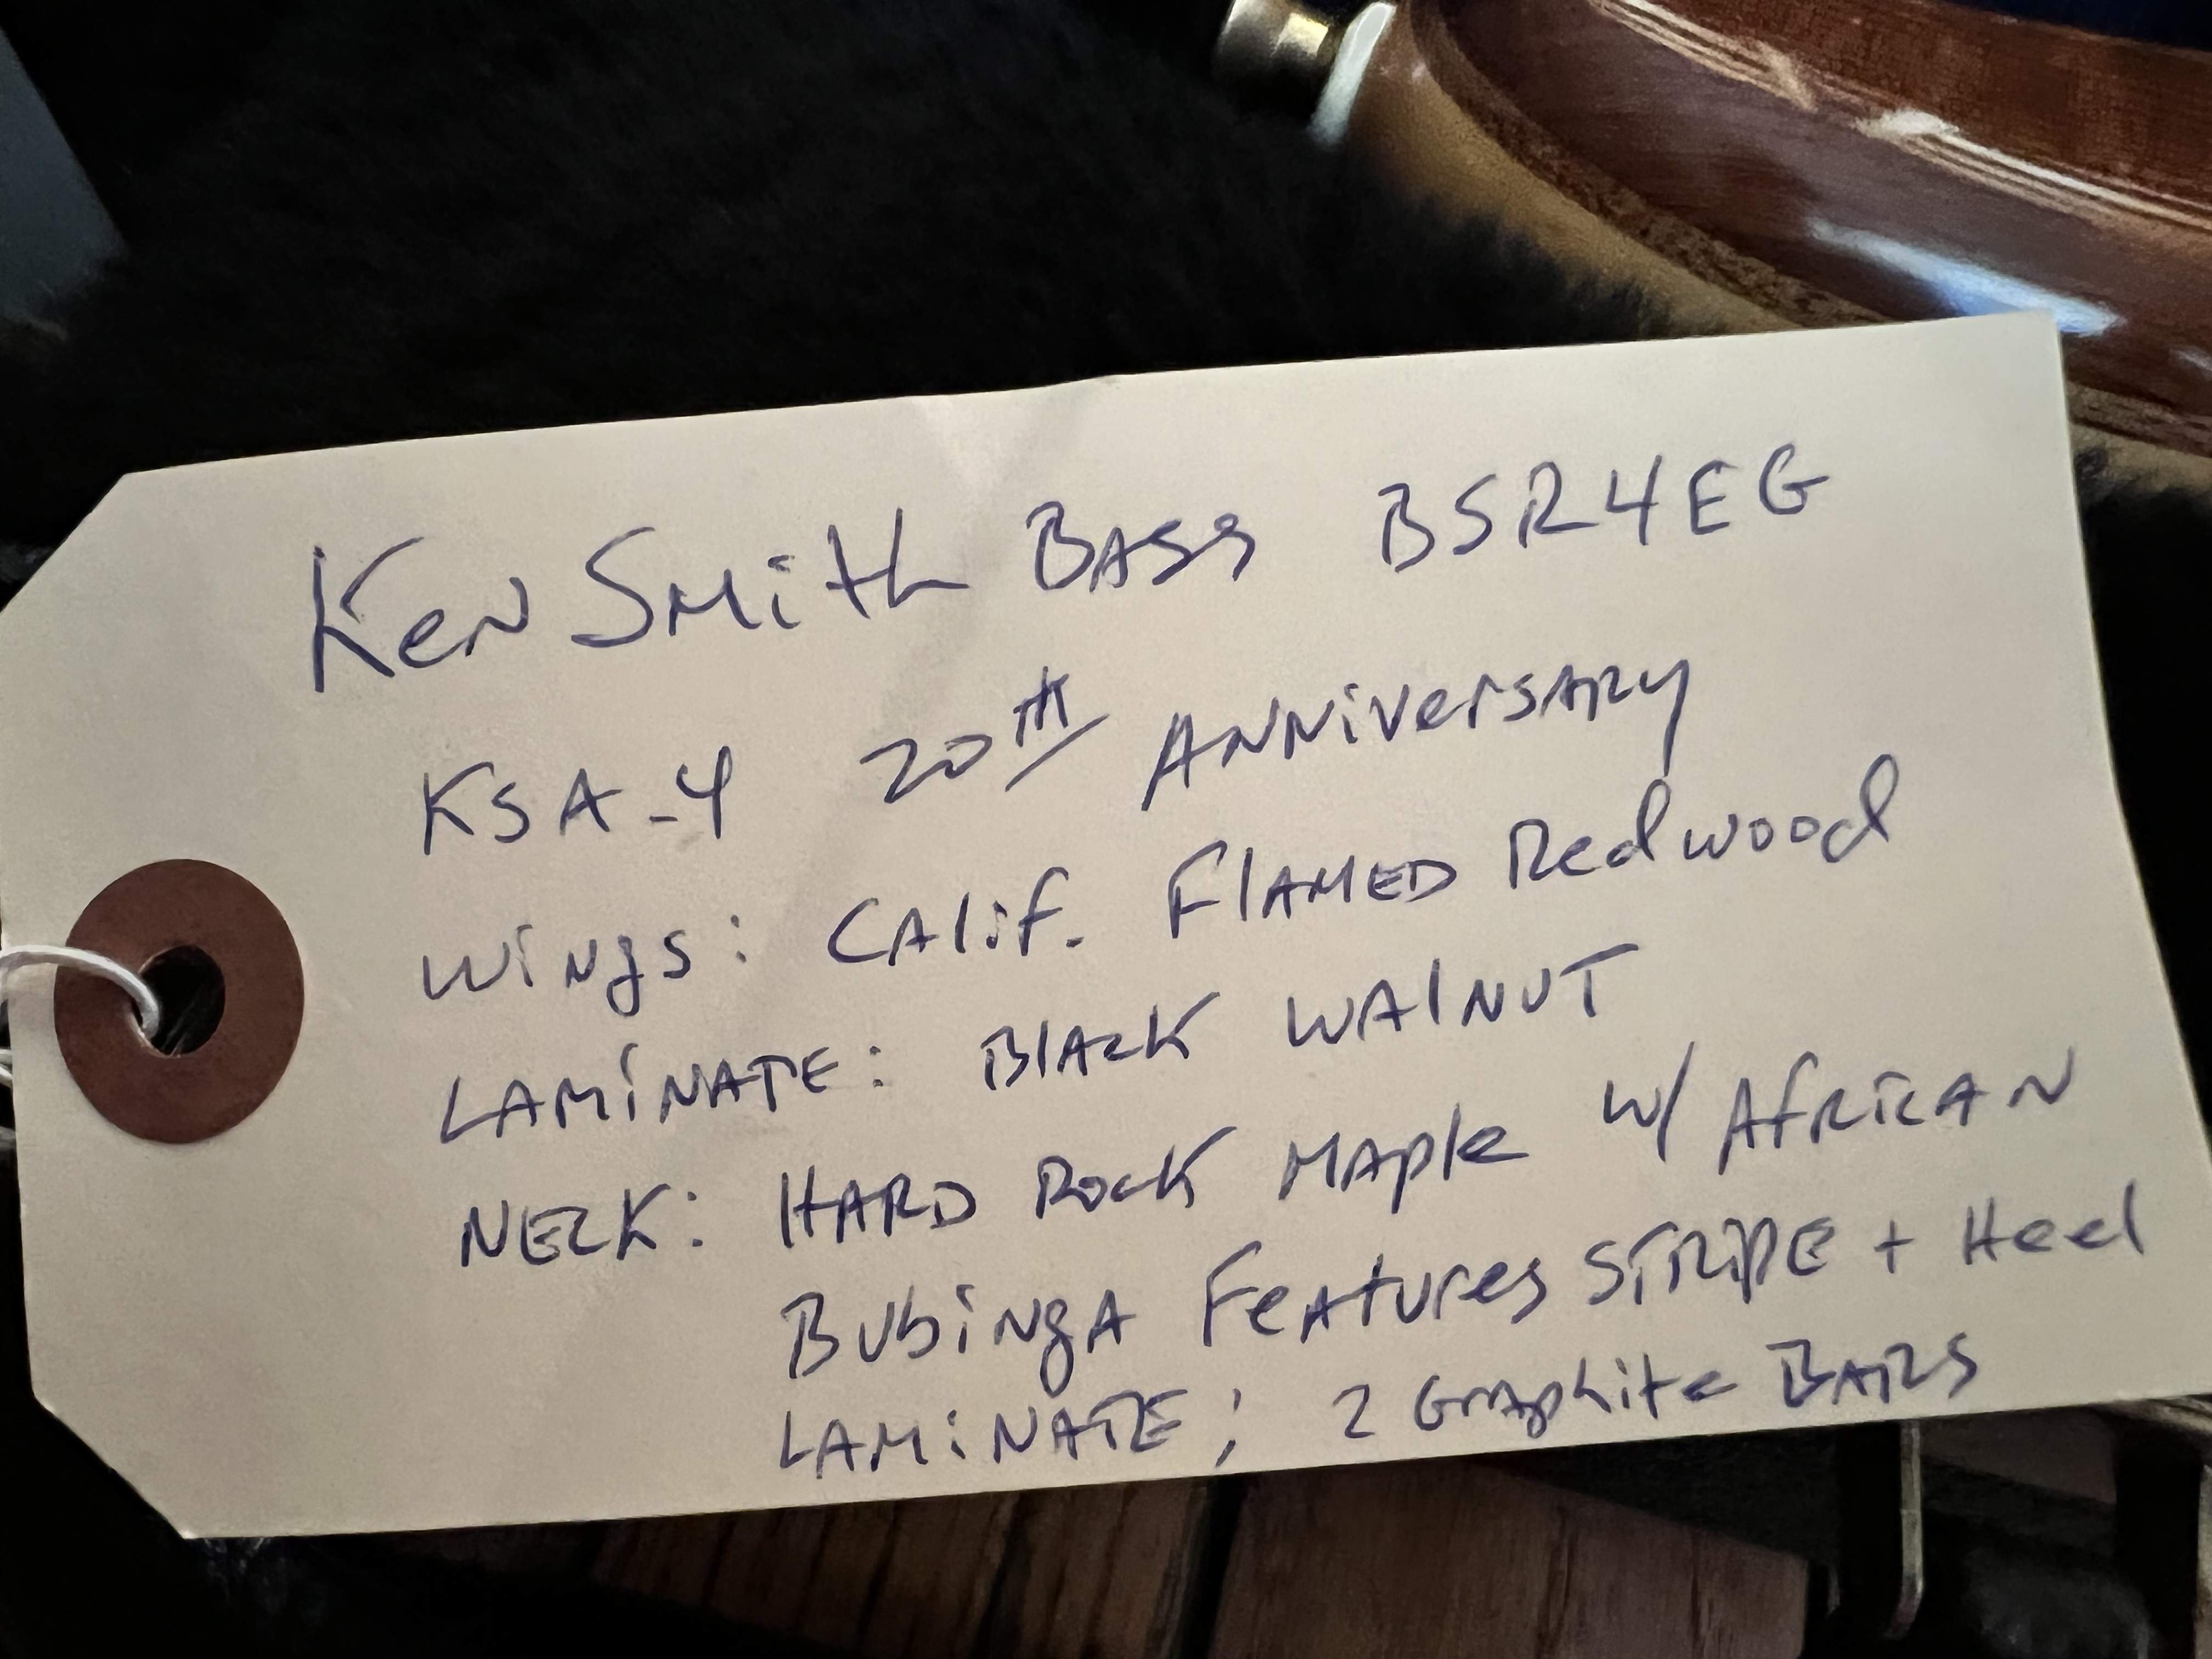 Ken Smith Bass BSR4EG
KSA-4 20th Anniversary
Wings: Calif. Flamed Redwood
Laminate: Black Walnut
Neck: Hard Rock Maple w/ African
Bubinga Features Stripe + Heel
Laminate; 2 Graphite Bars